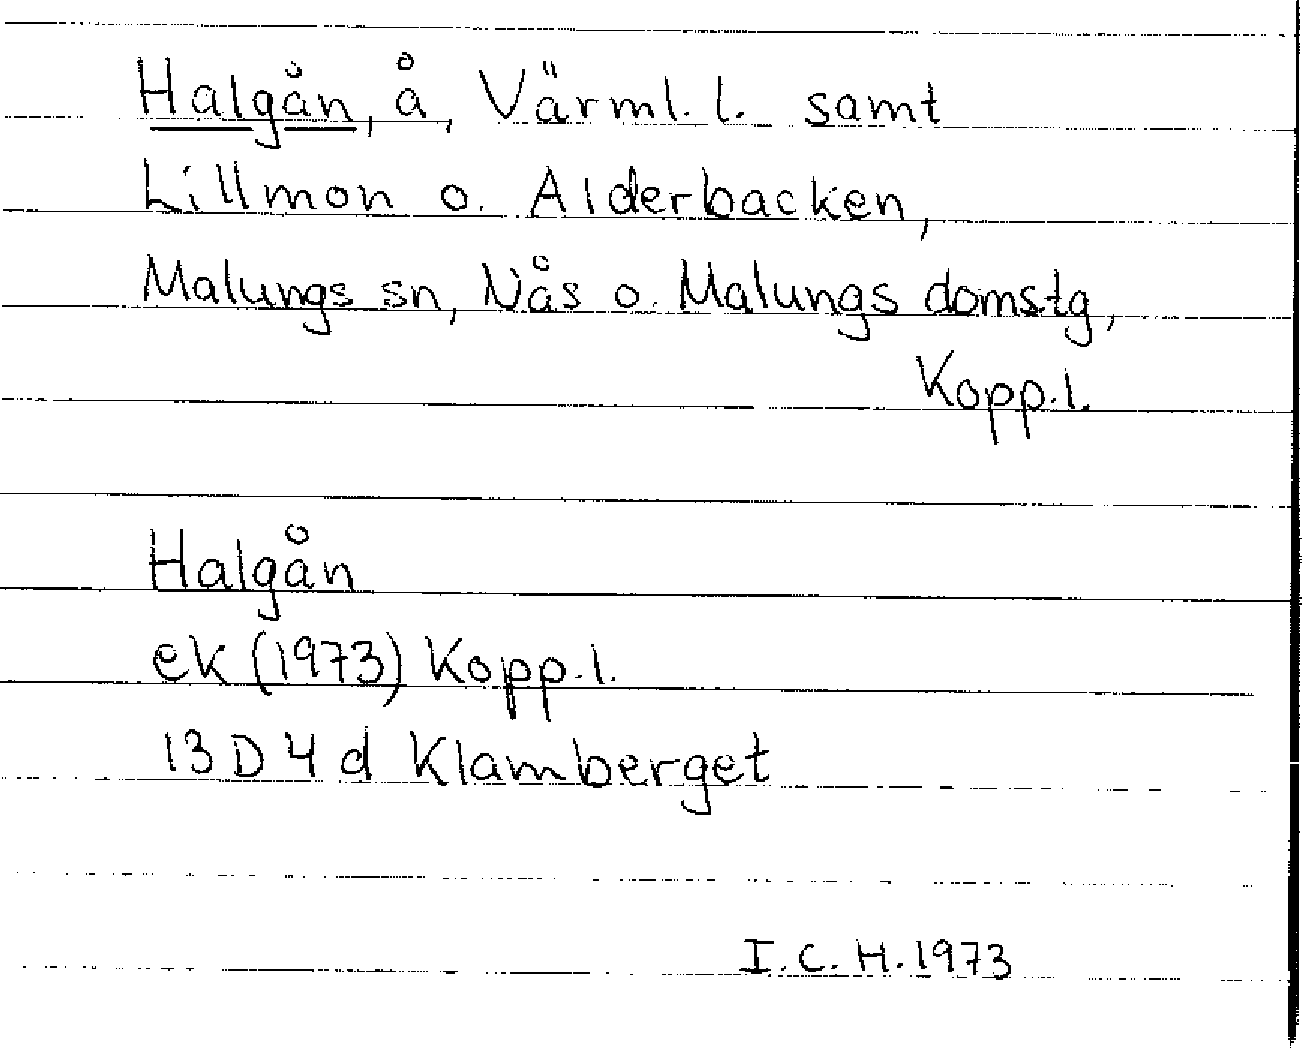 Halgån, å, Värml. l. samt
Lillmon o. Alderbacken,
Malungs sn, Nås o. Malungs domstg,
Kopp.l.
Halgån
ek (1973) Kopp.l.
13 D 4 d Klamberget
I.C.H.1973